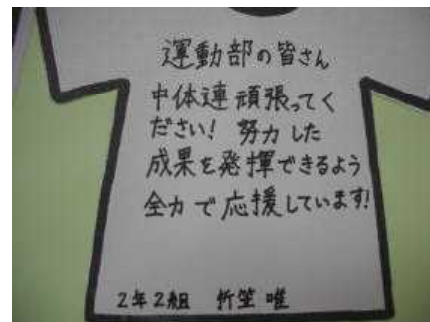 運動部の皆さん
中体連頑張ってく
ださい! 努力した
成果を発揮できるよう
全力で応援しています!
2年2組 竹笠 唯